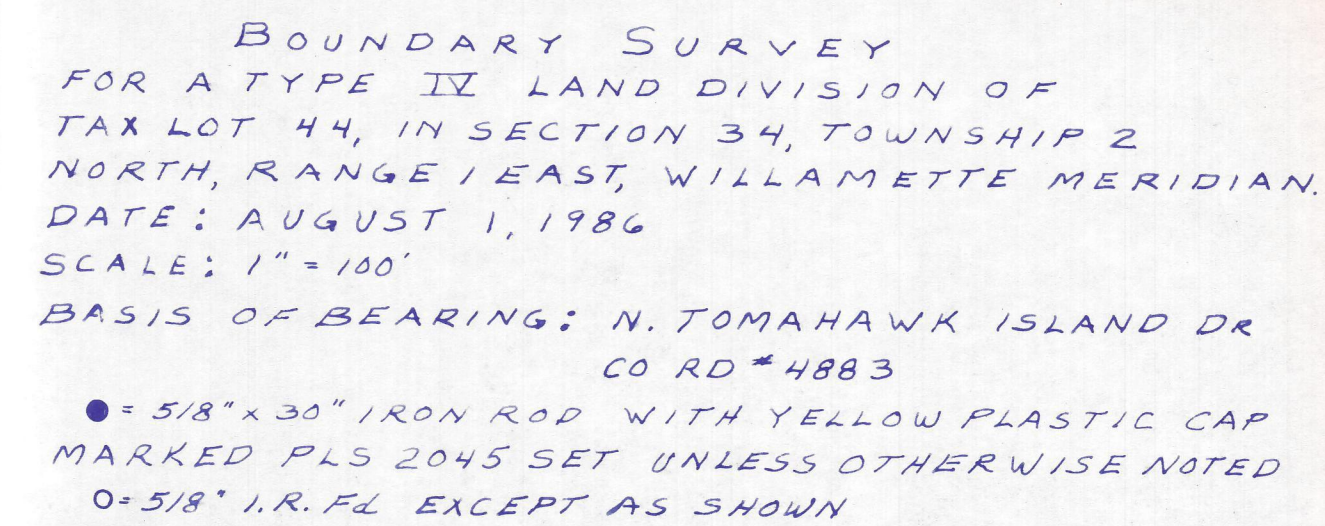 BOUNDARY SURVEY
FOR A TYPE IV LAND DIVISION OF
TAX LOT 44, IN SECTION 34, TOWNSHIP 2
NORTH, RANGE 1 EAST, WILLAMETTE MERIDIAN.
DATE: AUGUST 1, 1986
SCALE: 1" = 100'
BASIS OF BEARING: N. TOMAHAWK ISLAND DR
CO RD # 4883
● = 5/8" x 30" IRON ROD WITH YELLOW PLASTIC CAP
MARKED PLS 2045 SET UNLESS OTHERWISE NOTED
O = 5/8" I.R. Fd EXCEPT AS SHOWN